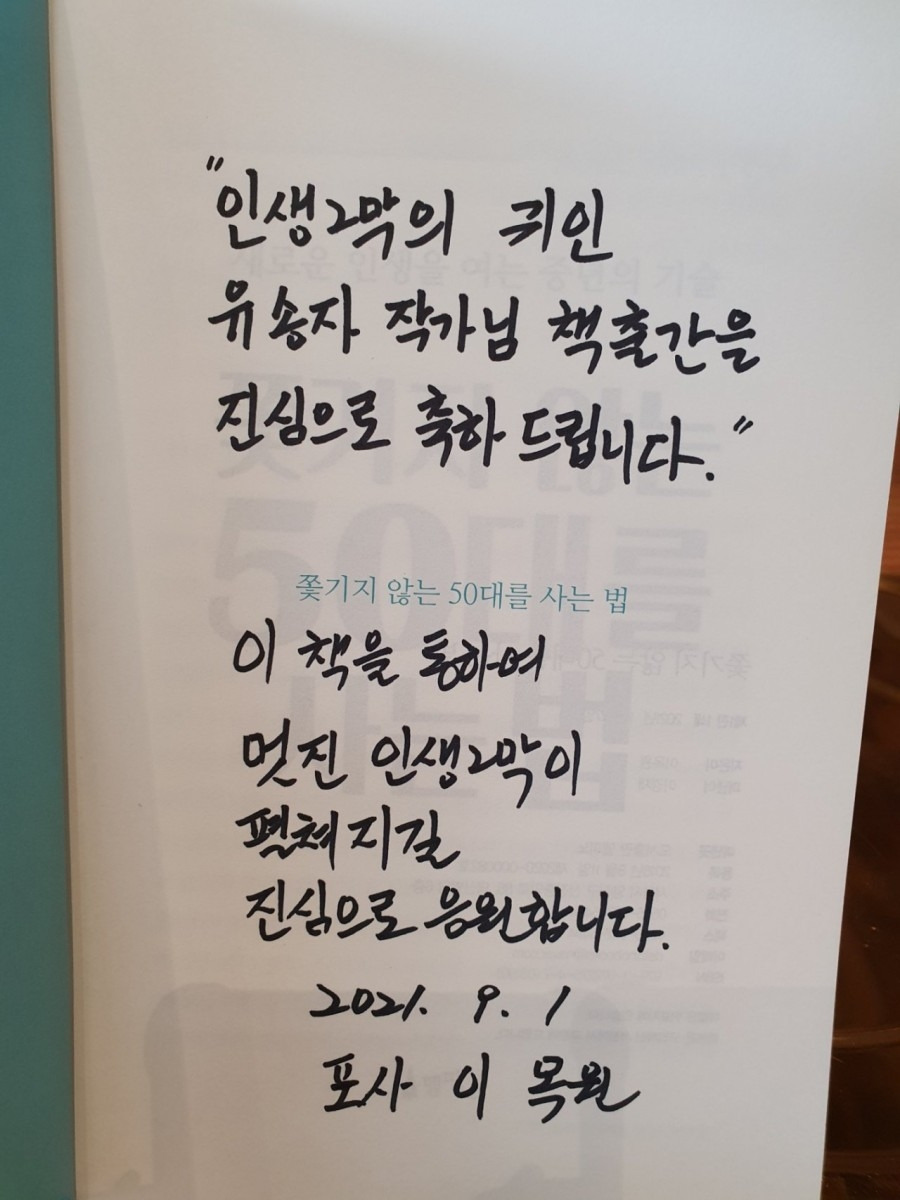 "인생2막의 귀인
유송자 작가님 책출간을
진심으로 축하 드립니다."
쫓기지 않는 50대를 사는 법
이 책을 통하여
멋진 인생2막이
펼쳐지길
진심으로 응원합니다.
2021. 9. 1
포사 이 목원